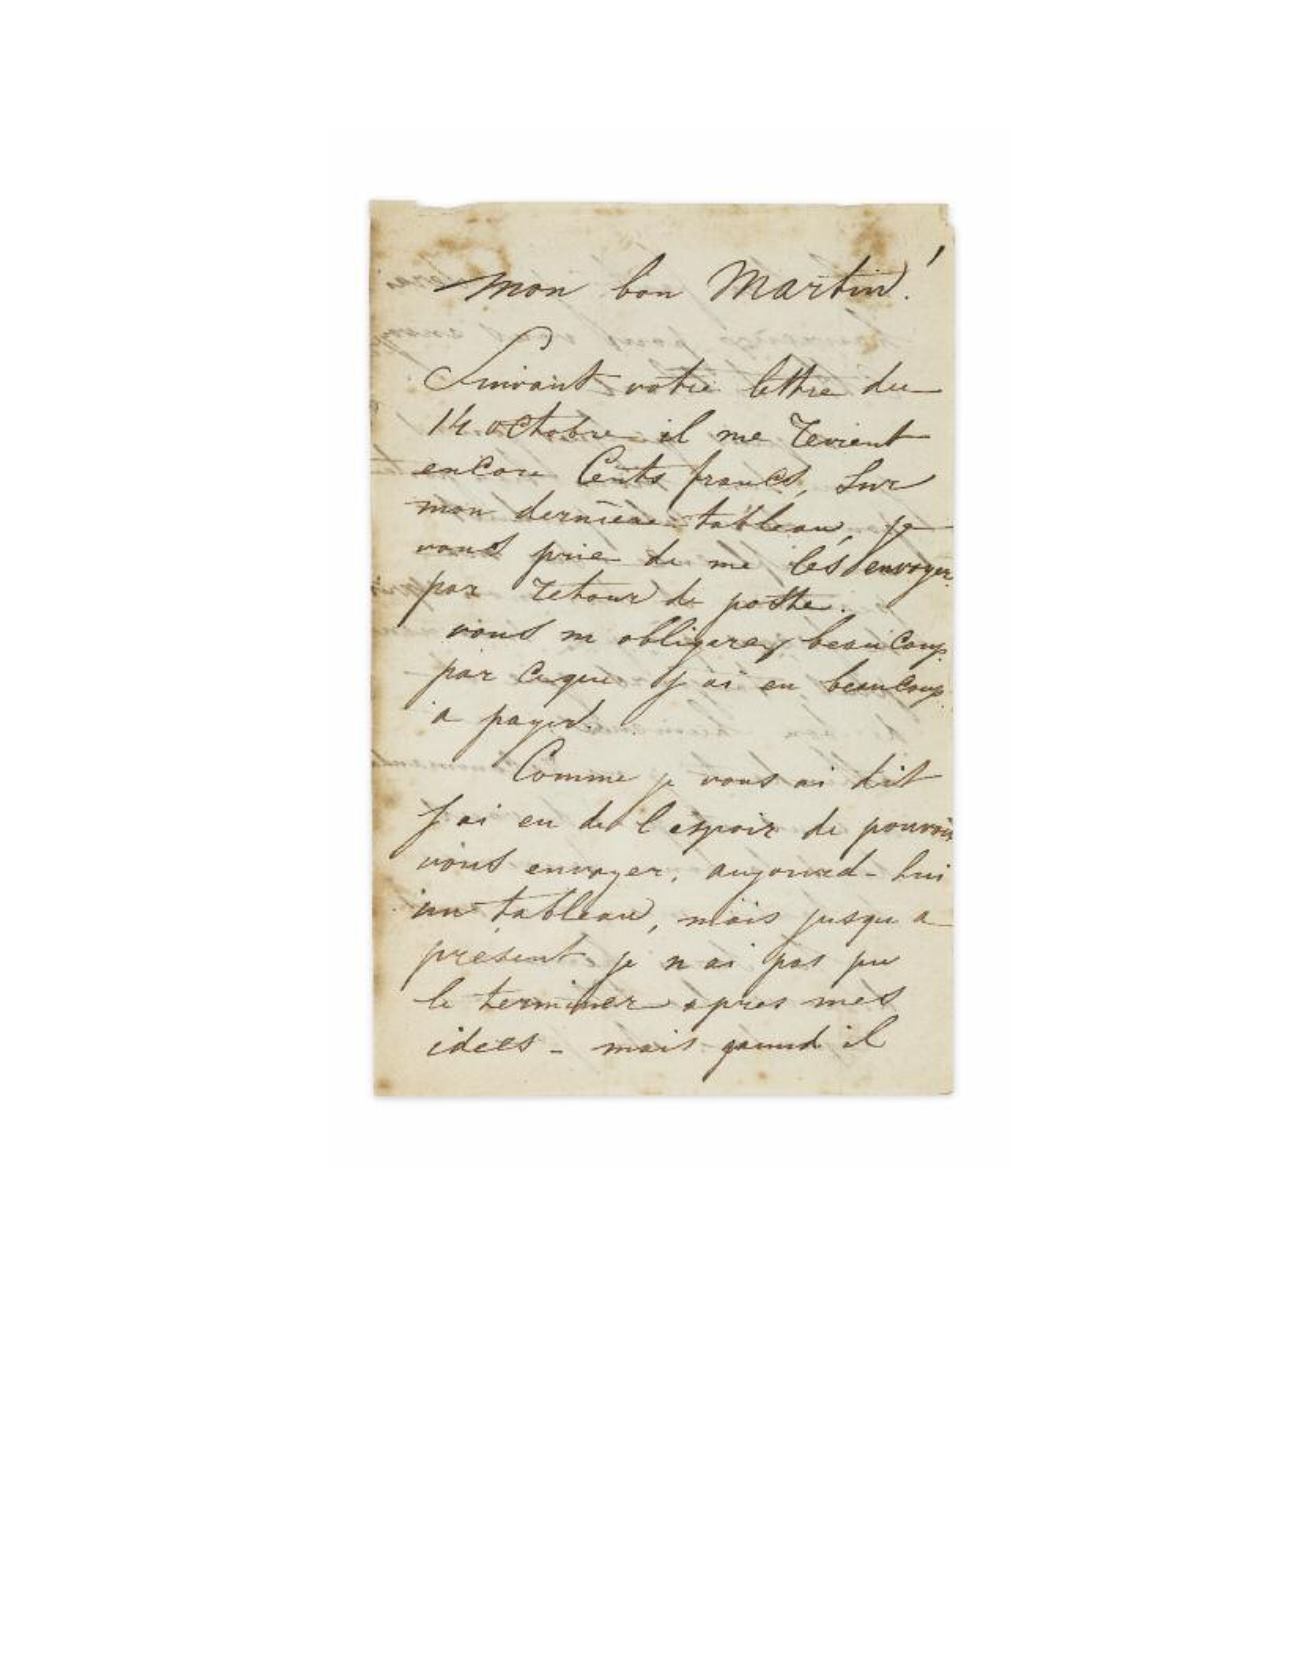 mon bon Martin!
Suivant votre lettre du
14 octobre il me revient
encore Cents francs, Sur
mon derniere tableau, je
vous prie de me les envoyer
par retour de poste.
vous m obligerez beaucoup
par ceque j ai eu beaucoup
a payer.
Comme je vous ai dit
j ai eu de l espoir de pouvoir
vous envoyer, aujourd-hui
un tableau, mais jusqu a
présent je n ai pas pu
le terminer apres mes
idees - mais quand il